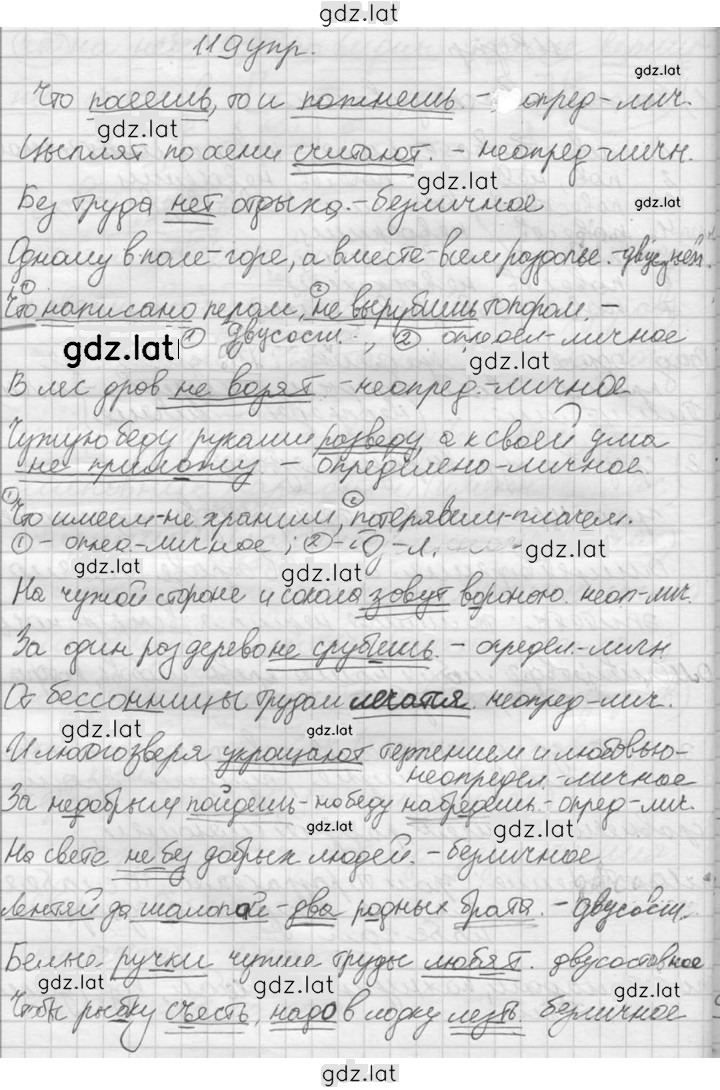 gdz.lat
119 упр.
gdz.lat
Что посеешь, то и пожнешь - опред-лич.
gdz.lat
Цыплят по осени считают. - неопред-личн.
gdz.lat
Без труда нет отдыха. - безличное
gdz.lat
Одному в поле - горе, а вместе - всем раздолье. -
① ②
Что написано пером, не вырубишь топором. -
gdz.lat ① двусост. , ② определ-личное
gdz.lat
В лес дров не возят. - неопред.-личное
Чужую беду руками разведу, а к своей ума
не приложу - определено-личное
gdz.lat gdz.lat
① ②
Что имеем - не храним, потерявши - плачем.
① - опред-личное ; ② - О-л.
gdz.lat gdz.lat
На чужой стороне и сокола зовут вороною. неоп-лич.
За один раз дерево не срубишь. - определ-личн
gdz.lat
От бессонницы трудом лечатся. неопред-лич.
gdz.lat gdz.lat
И лютого зверя укрощают терпением и любовью -
неопредел.-личное
За недобрым пойдешь - на беду набредешь - опред-лич.
gdz.lat gdz.lat
На свете не без добрых людей. - безличное
Лентяй да шалопай - два родных брата. - двусост.
gdz.lat
Белые ручки чужие труды любят. двусоставное
gdz.lat gdz.lat gdz.lat
Чтобы рыбку съесть, надо в лодку лезть. безличное
gdz.lat gdz.lat
gdz.lat